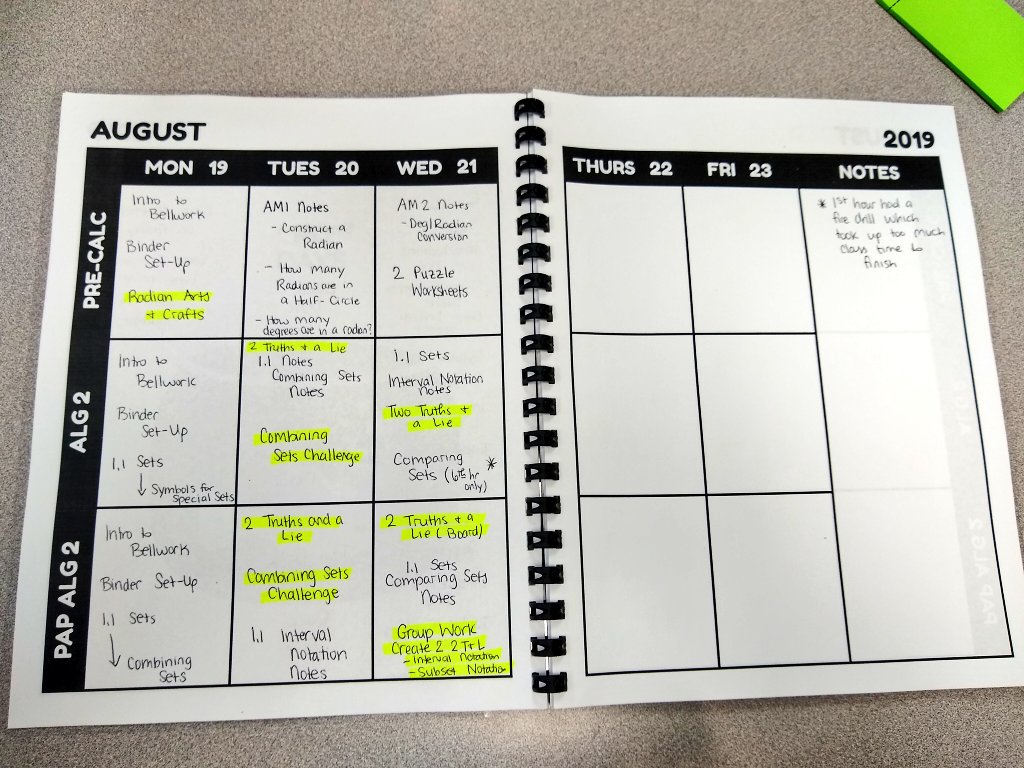 AUGUST
2019
MON 19
TUES 20
WED 21
THURS 22
FRI 23
NOTES
PRE-CALC
Intro to
Bellwork
Binder
Set-Up
Radian Arts
+ Crafts
AM1 Notes
- Construct a
Radian
- How many
Radians are in
a Half-Circle
- How many
degrees are in a radian?
AM 2 Notes
- Deg/Radian
Conversion
2 Puzzle
Worksheets
* 1st hour had a
fire drill which
took up too much
class time to
finish
ALG 2
Intro to
Bellwork
Binder
Set-Up
1.1 Sets
↓ Symbols for
Special Sets
2 Truths + a Lie
1.1 Notes
Combining Sets
Notes
Combining
Sets Challenge
1.1 Sets
Interval Notation
Notes
Two Truths +
a Lie
Comparing *
Sets (6th hr
only)
PAP ALG 2
Intro to
Bellwork
Binder Set-Up
1.1 Sets
↓ Combining
Sets
2 Truths and a
Lie
Combining Sets
Challenge
1.1 Interval
notation
Notes
2 Truths + a
Lie (Board)
1.1 Sets
Comparing Sets
Notes
Group Work
Create 2 2T+L
- Interval Notation
- Subset Notation